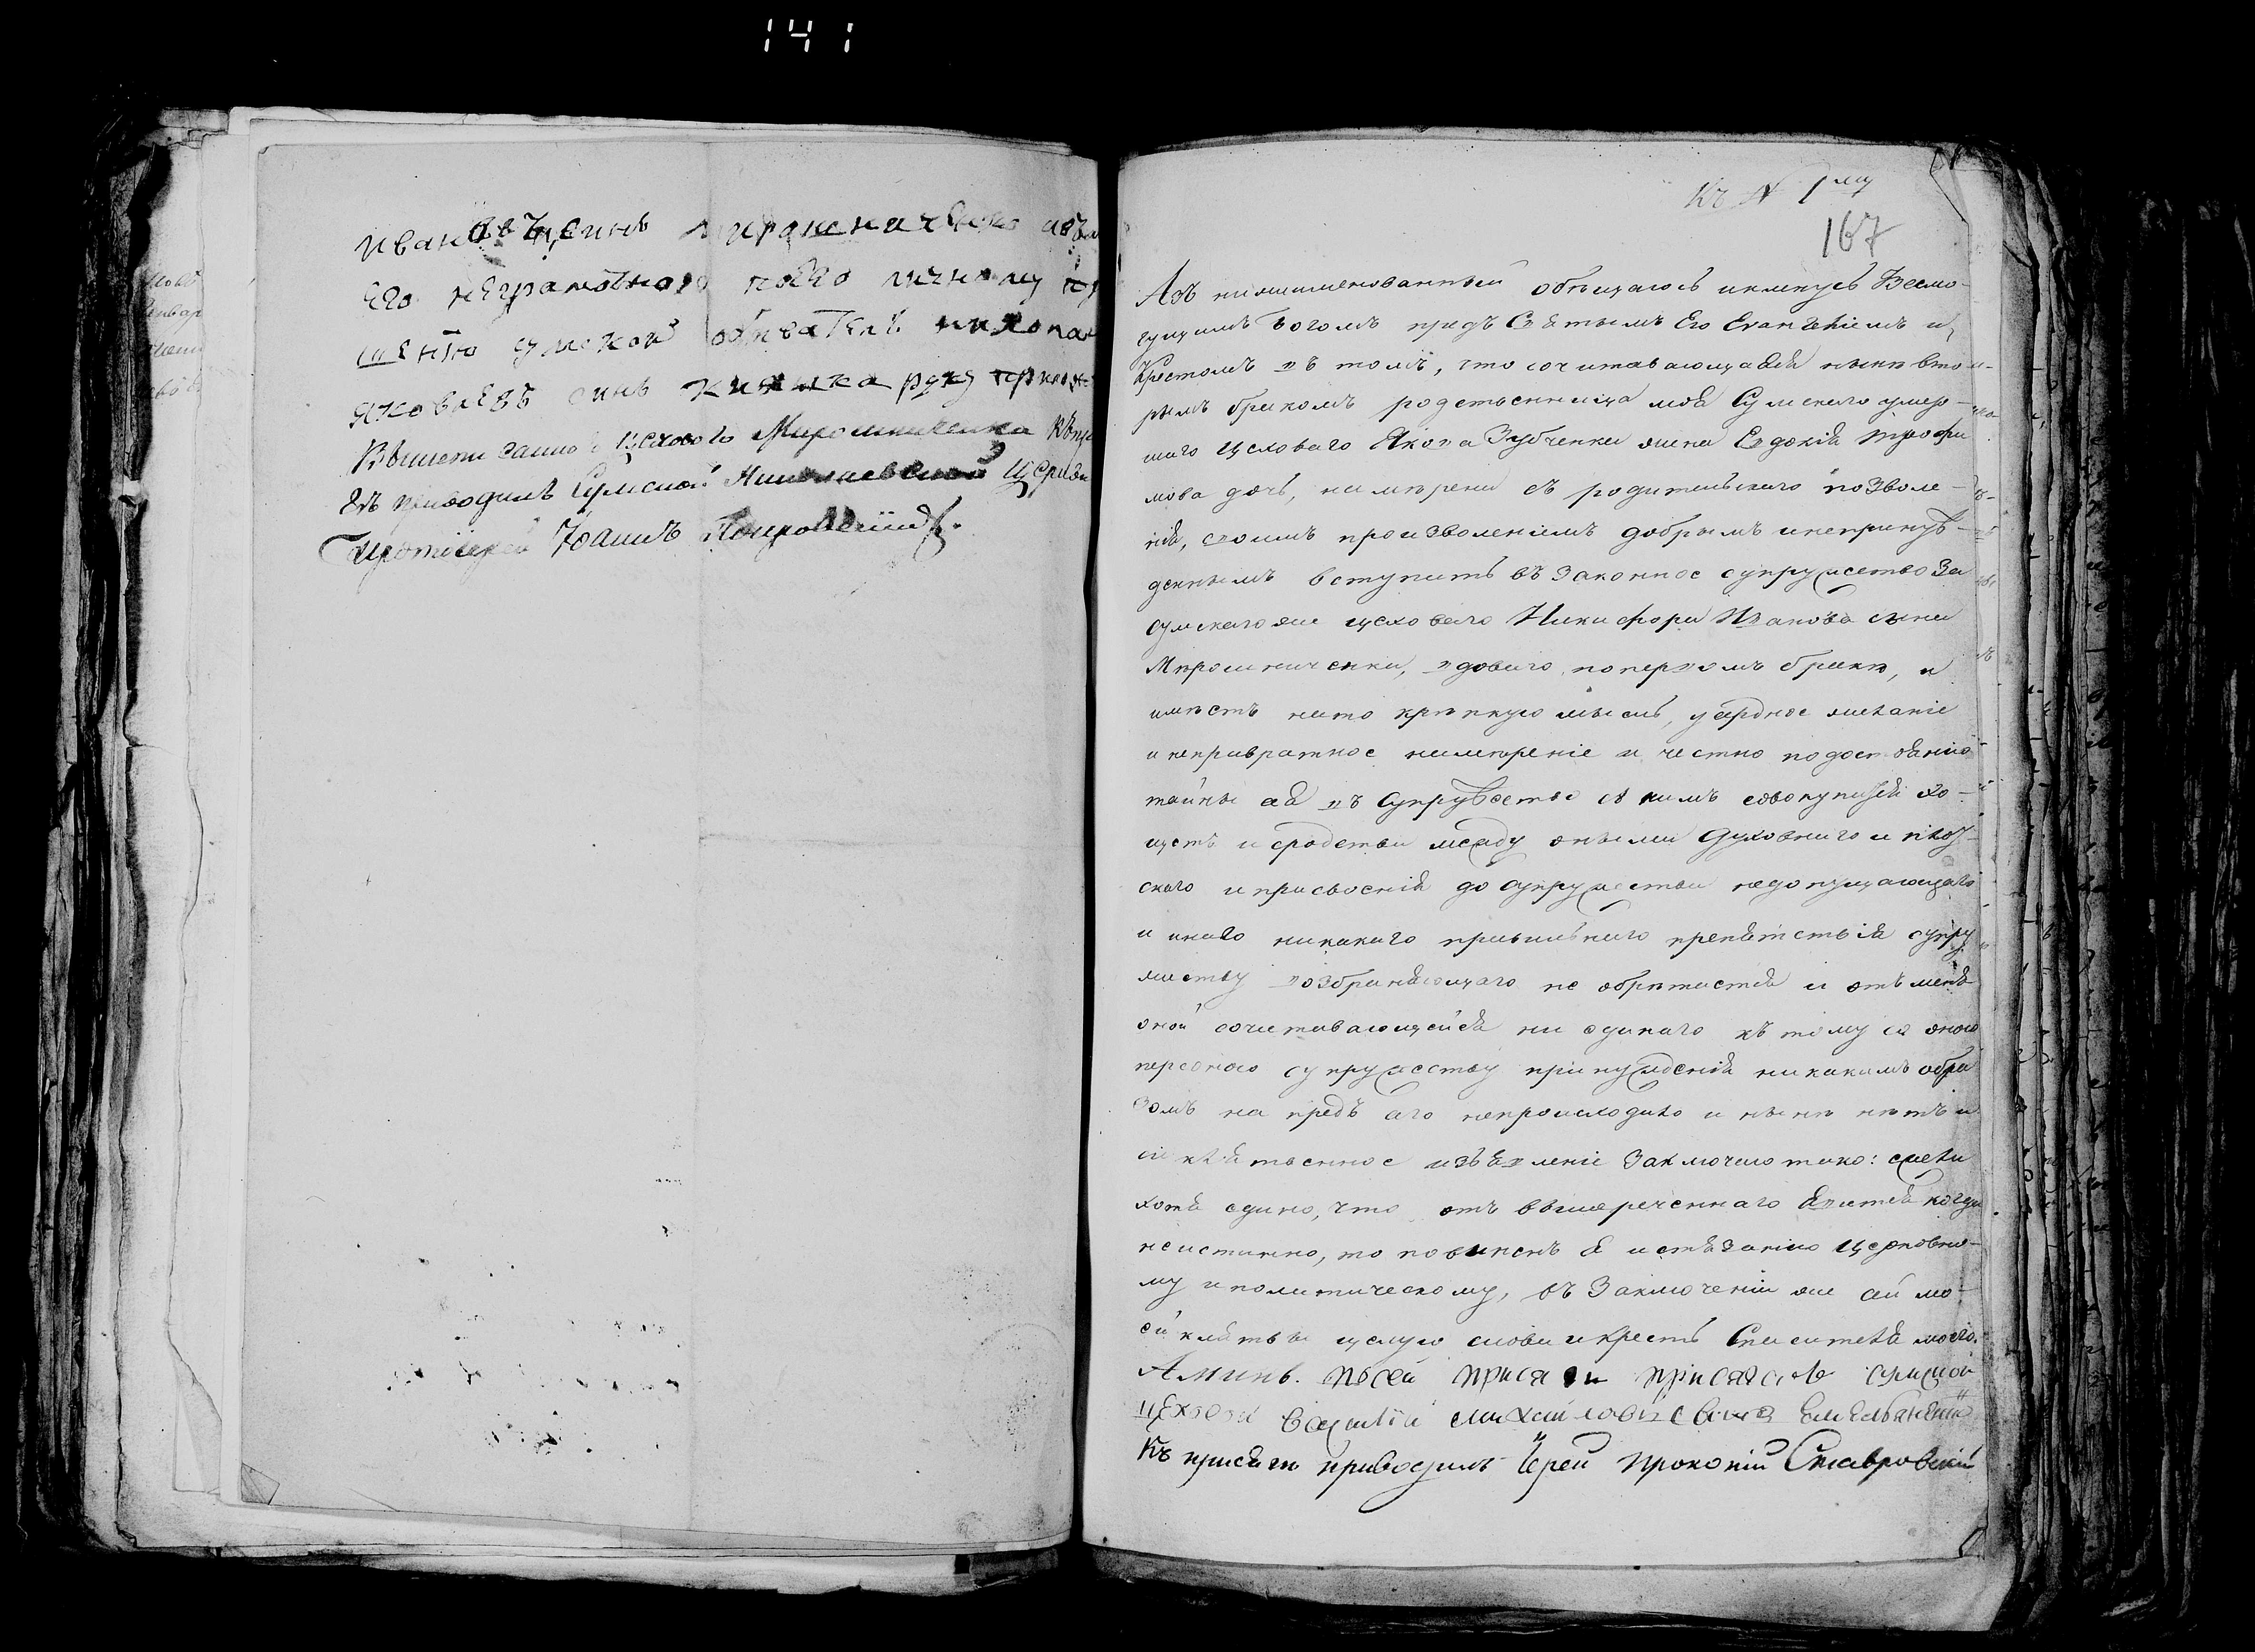 141
Ивановъ синъ Мирошниченко авъ
его неграмотного поего личному пр
шению сумской обиватель
Яковлевъ синъ руку прилож
Вышеписанного цехового Мирошниченка Къ пр
гѣ приводилъ Сумской Николаевской Церкви
Протоіерей Іоаннъ Покровскій
Къ № 1му
167
Азъ нижеименованный обѣщаюсь и кленусь Всемо-
гущимъ Богомъ предъ Святымъ Его Евангеліемъ и
Крестомъ въ томъ, что сочитавающаяся нынѣ вто
рымъ бракомъ родственница моя Сумского умер-
шаго цеховаго Якова Зубченка жена Евдокія Трофи
мова дочь, намѣрена съ родительскаго позволе-
нія, своимъ произволеніемъ добрымъ и непринуж-
деннымъ вступить въ законное супружество за
Сумскаго же цеховаго Никифора Иванова сына
Мирошниченка, вдоваго по первомъ бракѣ, и
имѣетъ на то крѣпкую мысль, усердное желаніе
и непревратное намѣреніе и честно подостоянію
тайны ся въ супружество съ нимъ совокупится хо-
щетъ и сродства между оными духовнаго и плот-
скаго и присвоенія до супружества недопущающаго
и инаго никакаго правильнаго препятствія супру
жеству возбраняющаго не обрѣтается и отъ меня
оной сочитавающейся ни единаго къ тому со оною
персоною супружеству принужденія никакимъ обра
зомъ на предъ сего непроисходило и нынѣ нѣтъ и
сіе клятвенное изъявленіе заключаю тако: ежели
хотя едино, что отъ вышереченнаго явится когда
неистинно, то повиненъ я истязанію церковно-
му и политическому, въ заключеніи же сей мо-
ей клятвы целую слова и крестъ Спасителя моего.
Аминь. По сей присяги присягалъ сумской
цеховой Василій Михайловъ синъ Емельяненко
Къ присягѣ приводилъ Іерей Прокопій Ставровскій